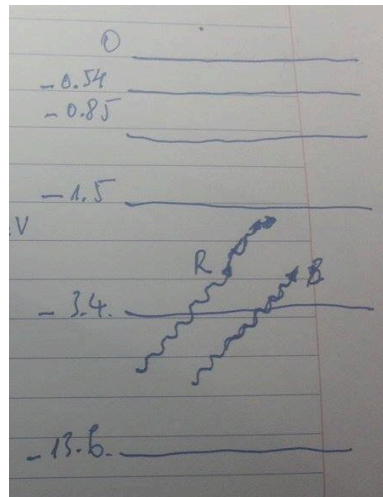 0
-0.54
-0.85
-1.5
.V
R
B
-3.4.
-13.6.